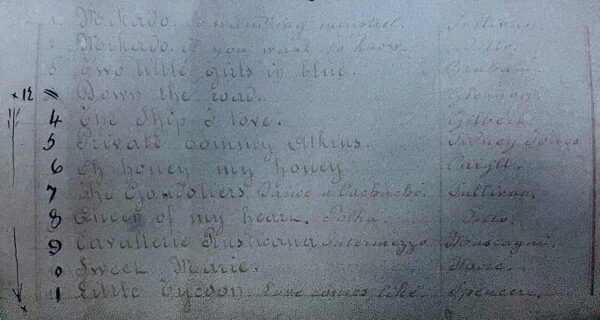 1 Mikado. A wandering minstrel. Sullivan
2 Mikado. If you want to know. Ditto.
3 Two little girls in blue. Graham.
×12 Down the road.
4 The Ship I love.
5 Private Tommy Atkins. Sidney Jones
6 Oh honey my honey Caryll.
7 The Gondoliers Dance a Cachucha. Sullivan.
8 Queen of my heart. Polka. Ditto
9 Cavallerie Rusticana intermezzo Mascagni.
0 Sweet Marie. Moore.
1 Little Tycoon Love comes like. Spencer.
×